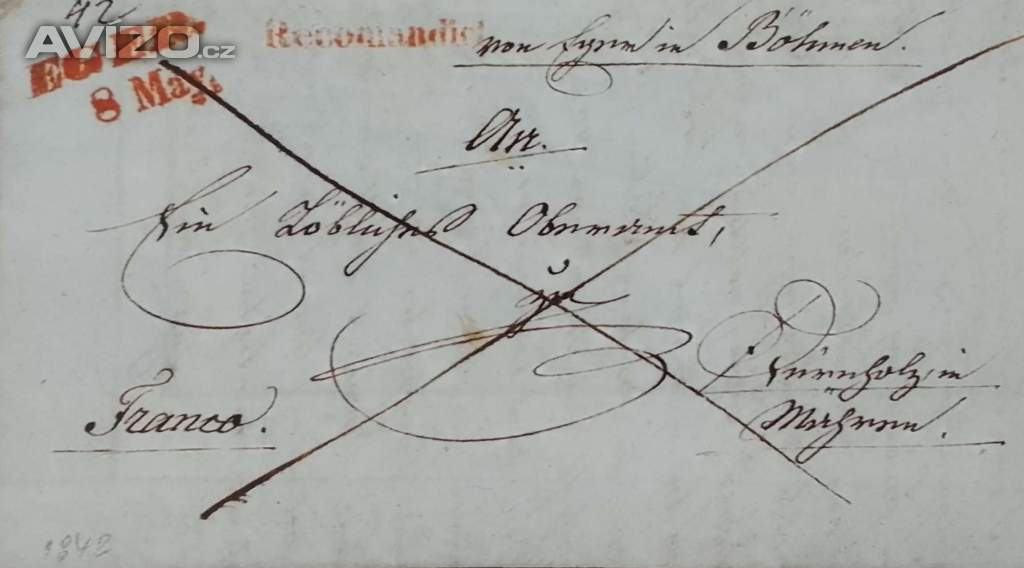 42
AVIZO.cz
EGER
8 May.
Recomandirt
von Eger in Böhmen.
An
Ein Löbliches Oberamt,
zu
Dürnholz, in
Franco.
Mähren.
1842